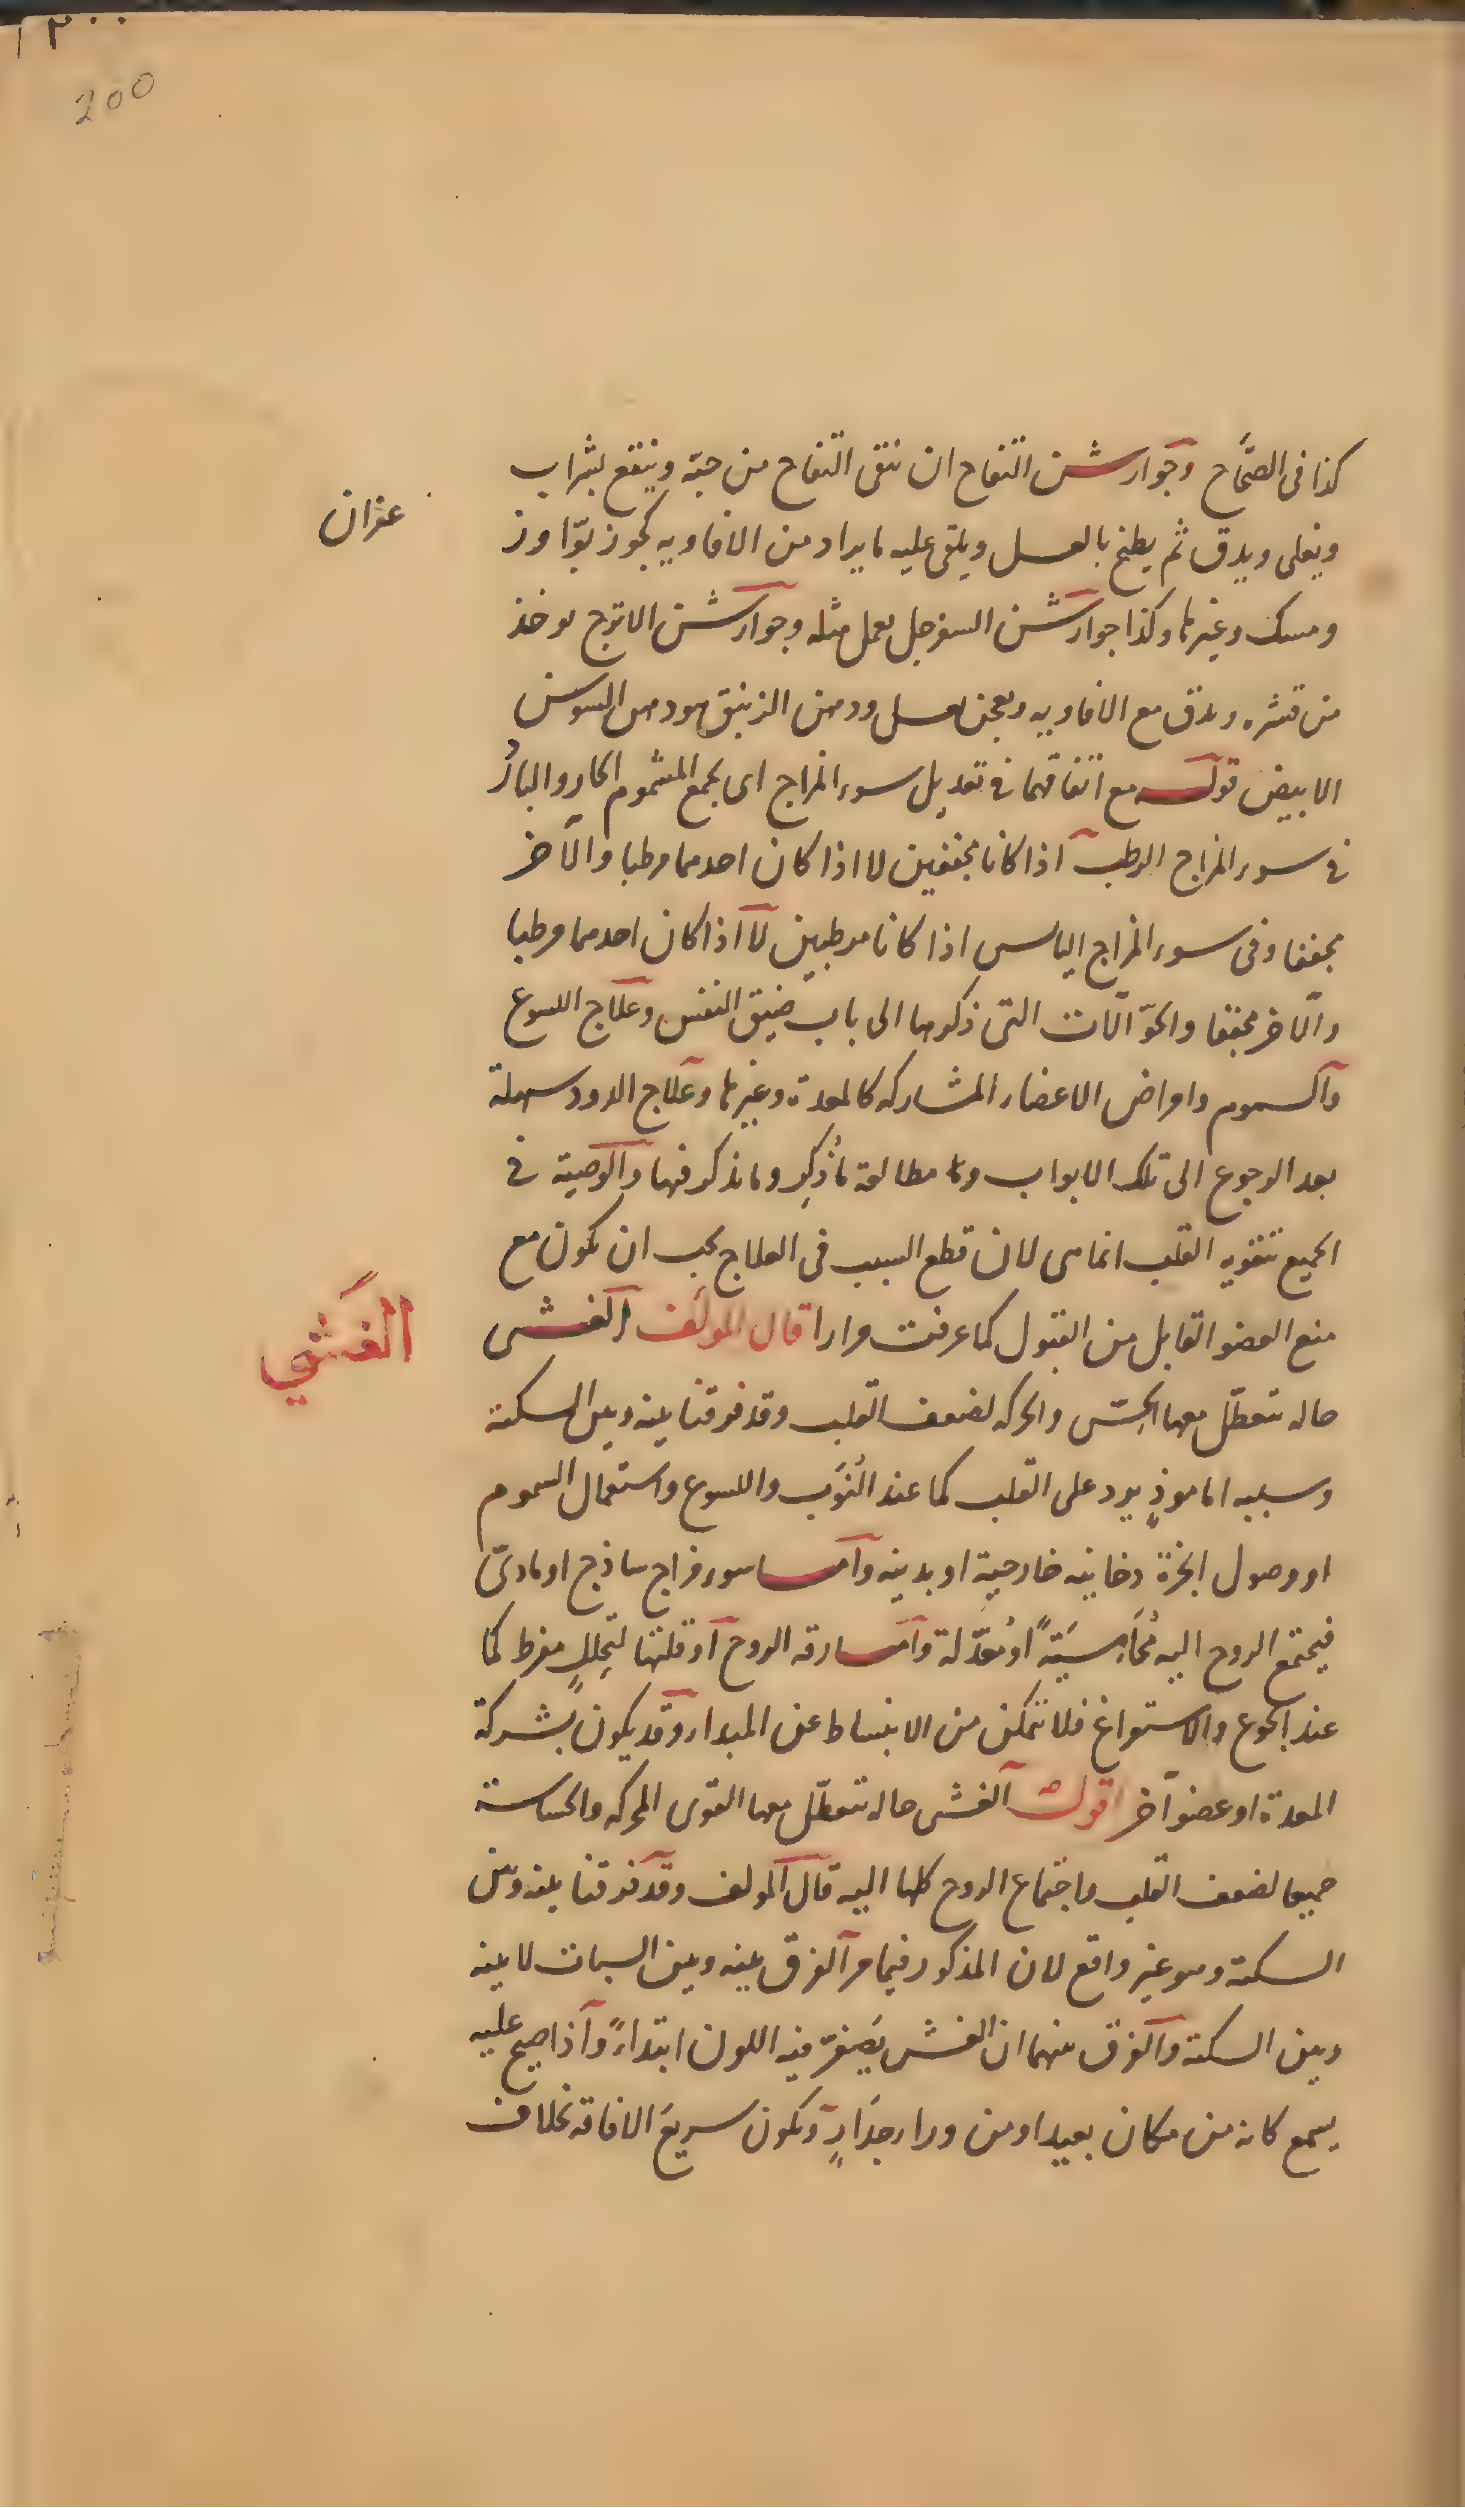 ٢٠٠
200
كذا فى الصحاح وجوارشن التفاح ان ينقى التفاح من حبّه وينقع بشراب
ويغلى ويدق ثم يطبخ بالعسل ويلقى عليه ما يراد من الافاويه كجوز بوّا وز
عفران
ومسك وغيرها وكذا جوارشن السفرجل يعمل مثله وجوارشن الاترج يوخذ
من قشره ويدق مع الافاويه ويعجن بعسل ودهن الزنبق هو دهن السوسن
الابيض قوله مع اتفاقهما فى تعديل سوء المزاج اى يجمع المشموم الحار والبارد
فى سوء المزاج الرطب اذا كانا مجففين لا اذا كان احدهما مرطبا والآخر
مجففا وفى سوء المزاج اليابس اذا كانا مرطبين لا اذا كان احدهما مرطبا
والآخر مجففا والحوالات التى ذكرها الى باب ضيق النفس وعلاج اللسوع
والسموم وامراض الاعضاء المشاركه كالمعدة وغيرها وعلاج الدود سهلة
بعد الرجوع الى تلك الابواب ومطالعة ما ذُكِر وما نذكر فيها والوصية فى
الجميع بتقويه القلب انما هى لان قطع السبب فى العلاج يجب ان يكون مع
منع العضو القابل من القبول كما عرفت مرارا قال المولف الغشى
الغَشْي
حاله تتعطّل معها الحِسّ والحركه لضعف القلب وقد فرقنا بينه وبين السكتة
وسببه اما موذٍ يرد على القلب كما عند النُوَب واللسوع واستعمال السموم
او وصول ابخرة دخانيه خارجية او بدنيه واما سوء مزاج ساذج او مادىّ
فيجتمع الروح اليه مُحَامِيَةً او مُعَدّلة واما رقه الروح او قلتها لتحللٍ مفرط كما
عند الجوع والاستفراغ فلا تتمكن من الانبساط عن المبداء وقد يكون بشركة
المعدة او عضو آخر اقول الغشى حاله تتعطّل معها القوى المحركه والحساسة
جميعا لضعف القلب واجتماع الروح كلها اليه قال المولف وقد فرقنا بينه وبين
السكتة وهو غير واقع لان المذكور فيما مر الفرق بينه وبين السبات لا بينه
وبين السكتة والفرق بينهما ان الغشى يَصْفَرّ فيه اللون ابتداءً واذا صيح عليه
يسمع كانه من مكان بعيد او من وراء جدارٍ ويكون سريع الافاقة بخلاف